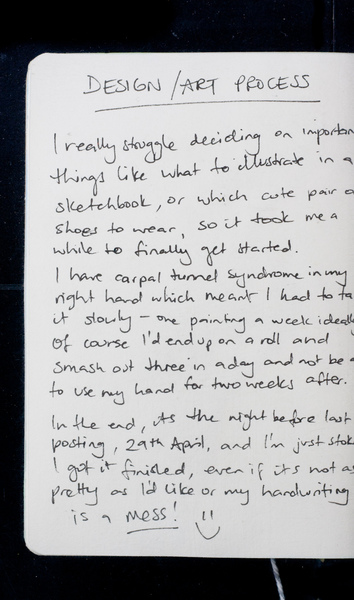 DESIGN/ART PROCESS
I really struggle deciding on importan
things like what to illustrate in a
sketchbook, or which cute pair o
shoes to wear, so it took me a
while to finally get started.
I have carpal tunnel syndrome in my
right hand which meant I had to ta
it slowly - one painting a week ideally
Of course I'd end up on a roll and
smash out three in a day and not be a
to use my hand for two weeks after.
In the end, its the night before last
posting, 29th April, and I'm just stok
I got it finished, even if it's not as
pretty as I'd like or my handwriting
is a mess!